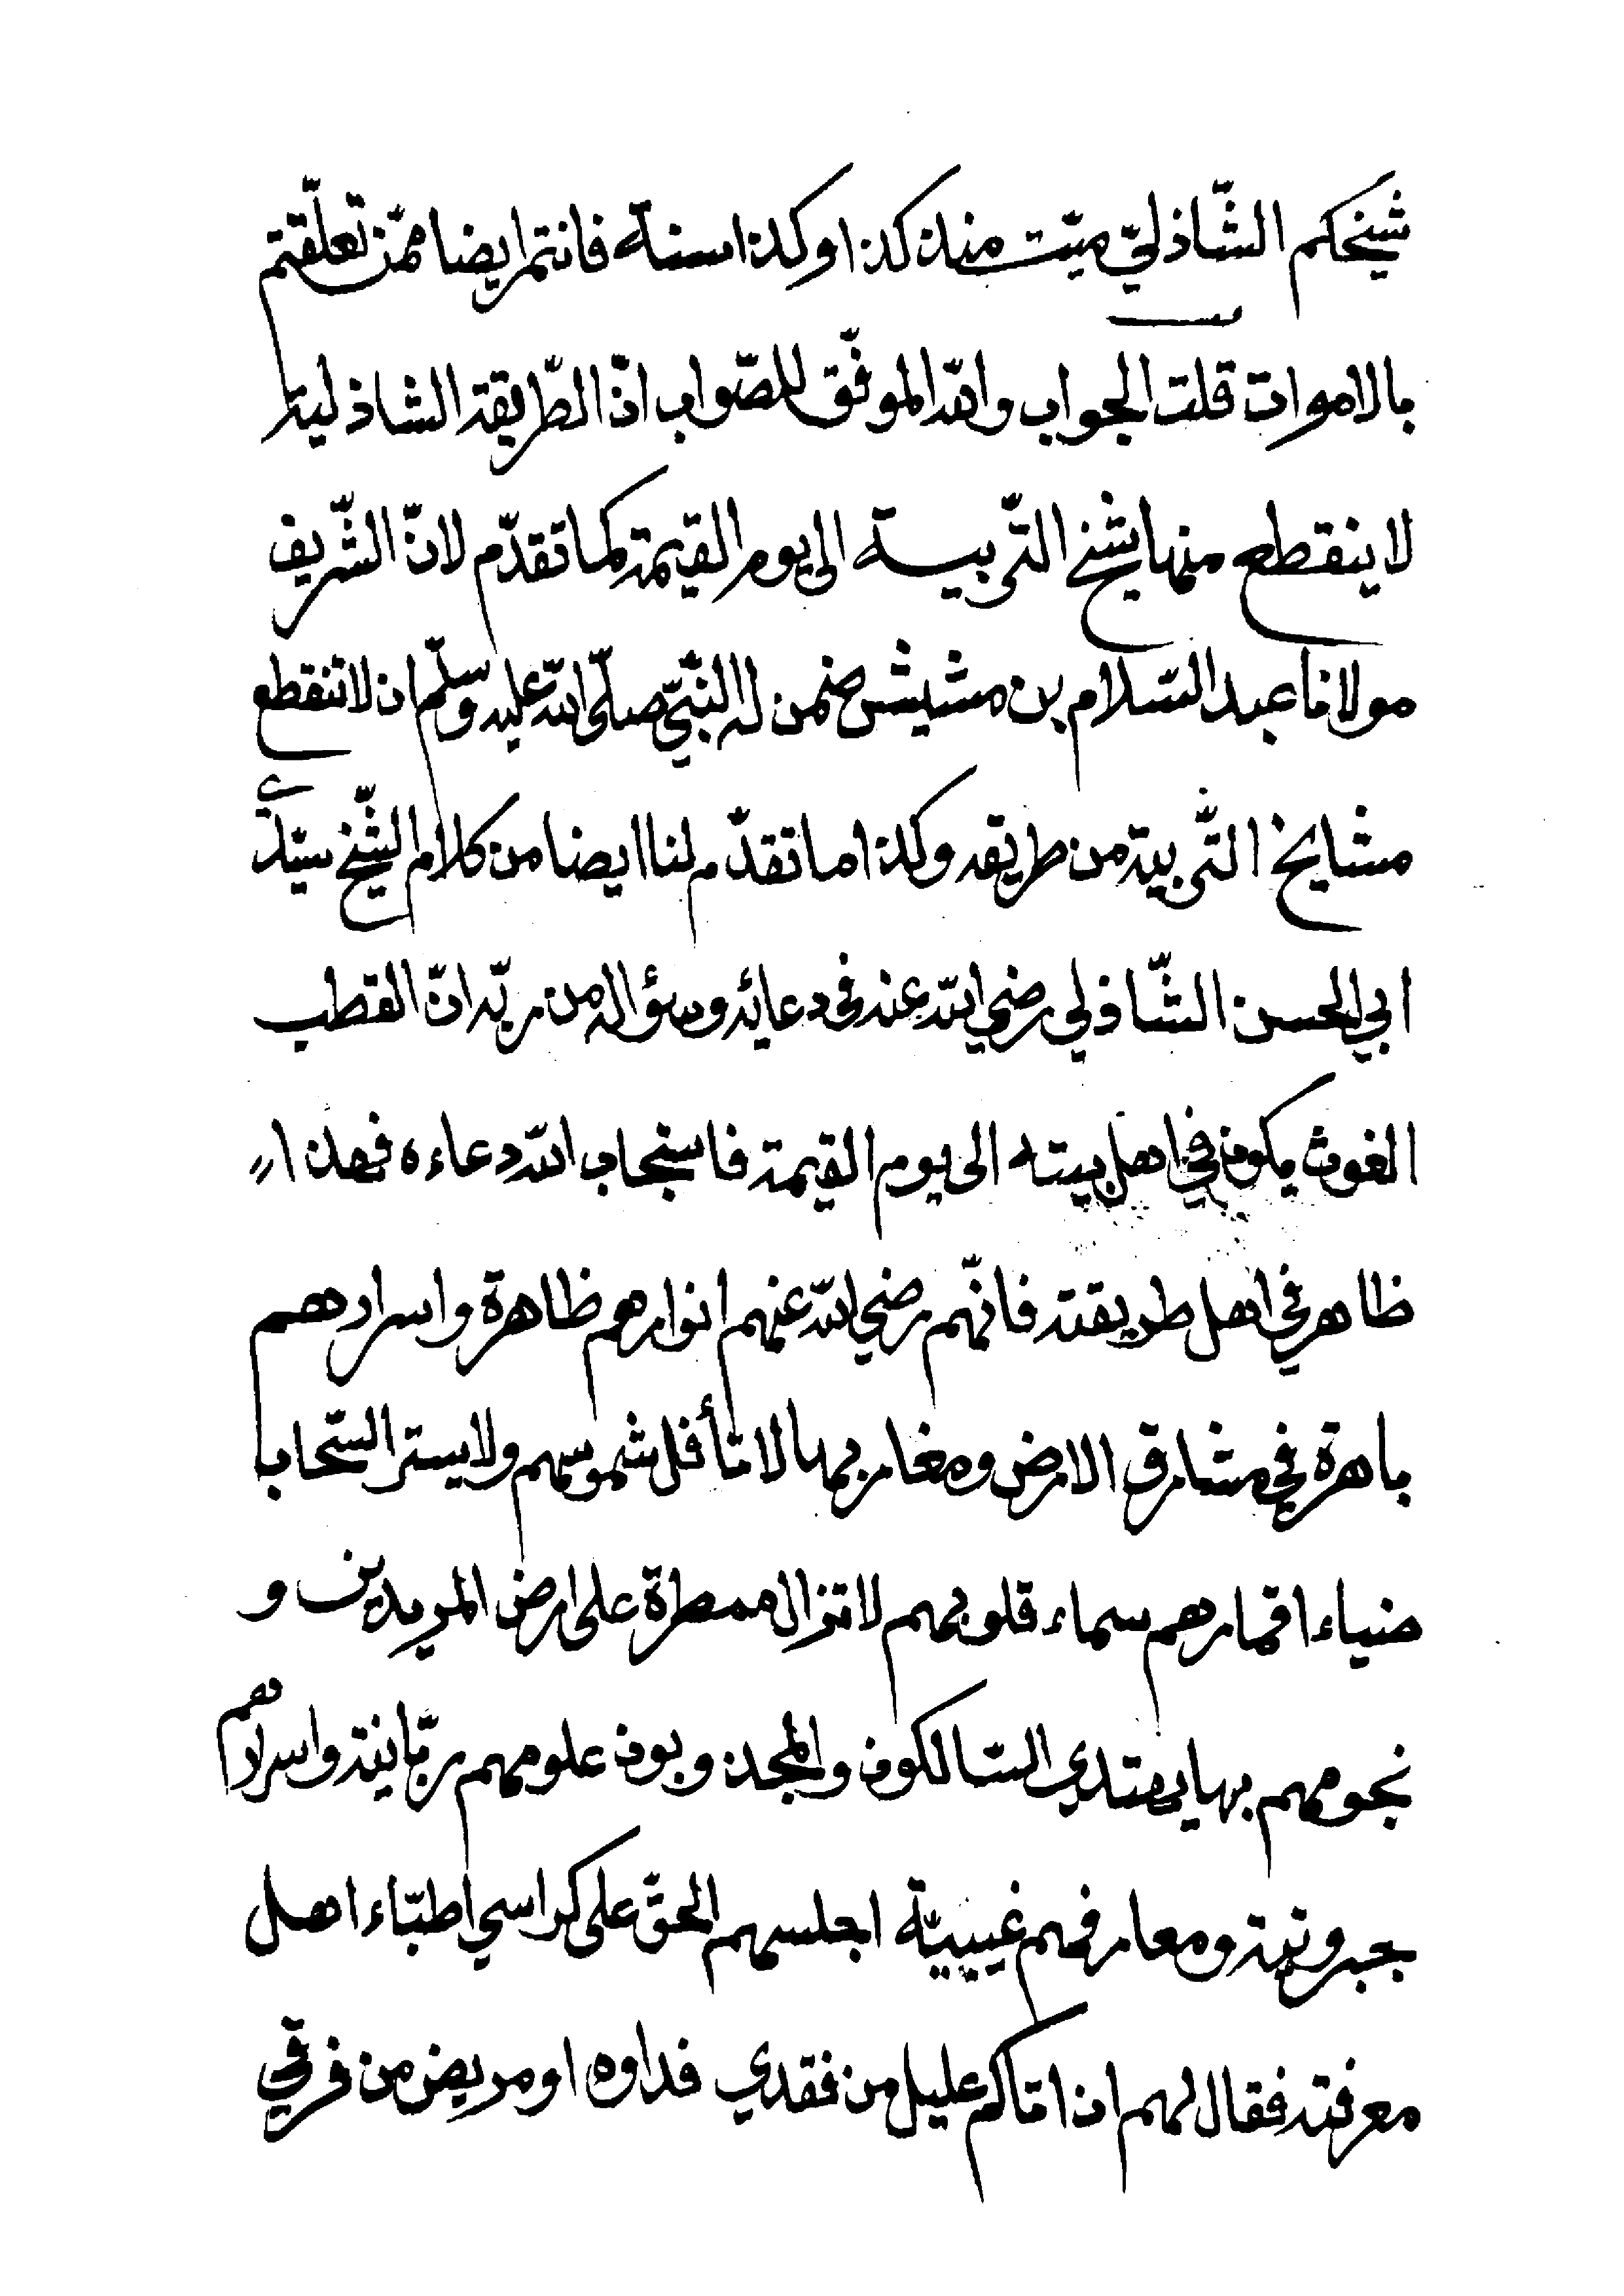 شيخكم الشّاذليّ ميّت منذ كذا وكذا سنة فانتم ايضا ممّن تعلّقتم
بالاموات قلت الجواب واللّه الموفّق للصّواب انّ الطّريقة الشاذلية
لا ينقطع منها شيخ التّربيـة الى يوم القيمة كما تقدّم لانّ الشّريف
مولانا عبد السّلام بن مشيش ضمن له النّبيّ صلّى اللّه عليه وسلّم ان لا تنقطع
مشايخ التّربية من طريقه وكذا ما تقدّم لنا ايضا من كلام الشّيخ سيّدي
ابي الحسن الشّاذلي رضي اللّه عنه في دعائه وسؤاله من ربّه انّ القطب
الغوث يكون في اهل بيته الى يوم القيمة فاستجاب اللّه دعاءه فهذا
ظاهر في اهل طريقته فانّهم رضي اللّه عنهم انوارهم ظاهرة واسرارهم
باهرة في مشارق الارض ومغاربها لا تأفل شموسهم ولا يستر السّحاب
ضياء اقمارهم سماء قلوبهم لا تزال ممطرة على ارض المريدين و
نجومهم بها يهتدي السّالكون والمجذوبون علومهم ربّانية واسرارهم
جبروتية ومعارفهم غيبيّة اجلسهم الحقّ على كراسي اطبّاء اهل
معرفته فقال لهم اذا اتاكم عليل من فقدي فداوه او مريض من فرقي